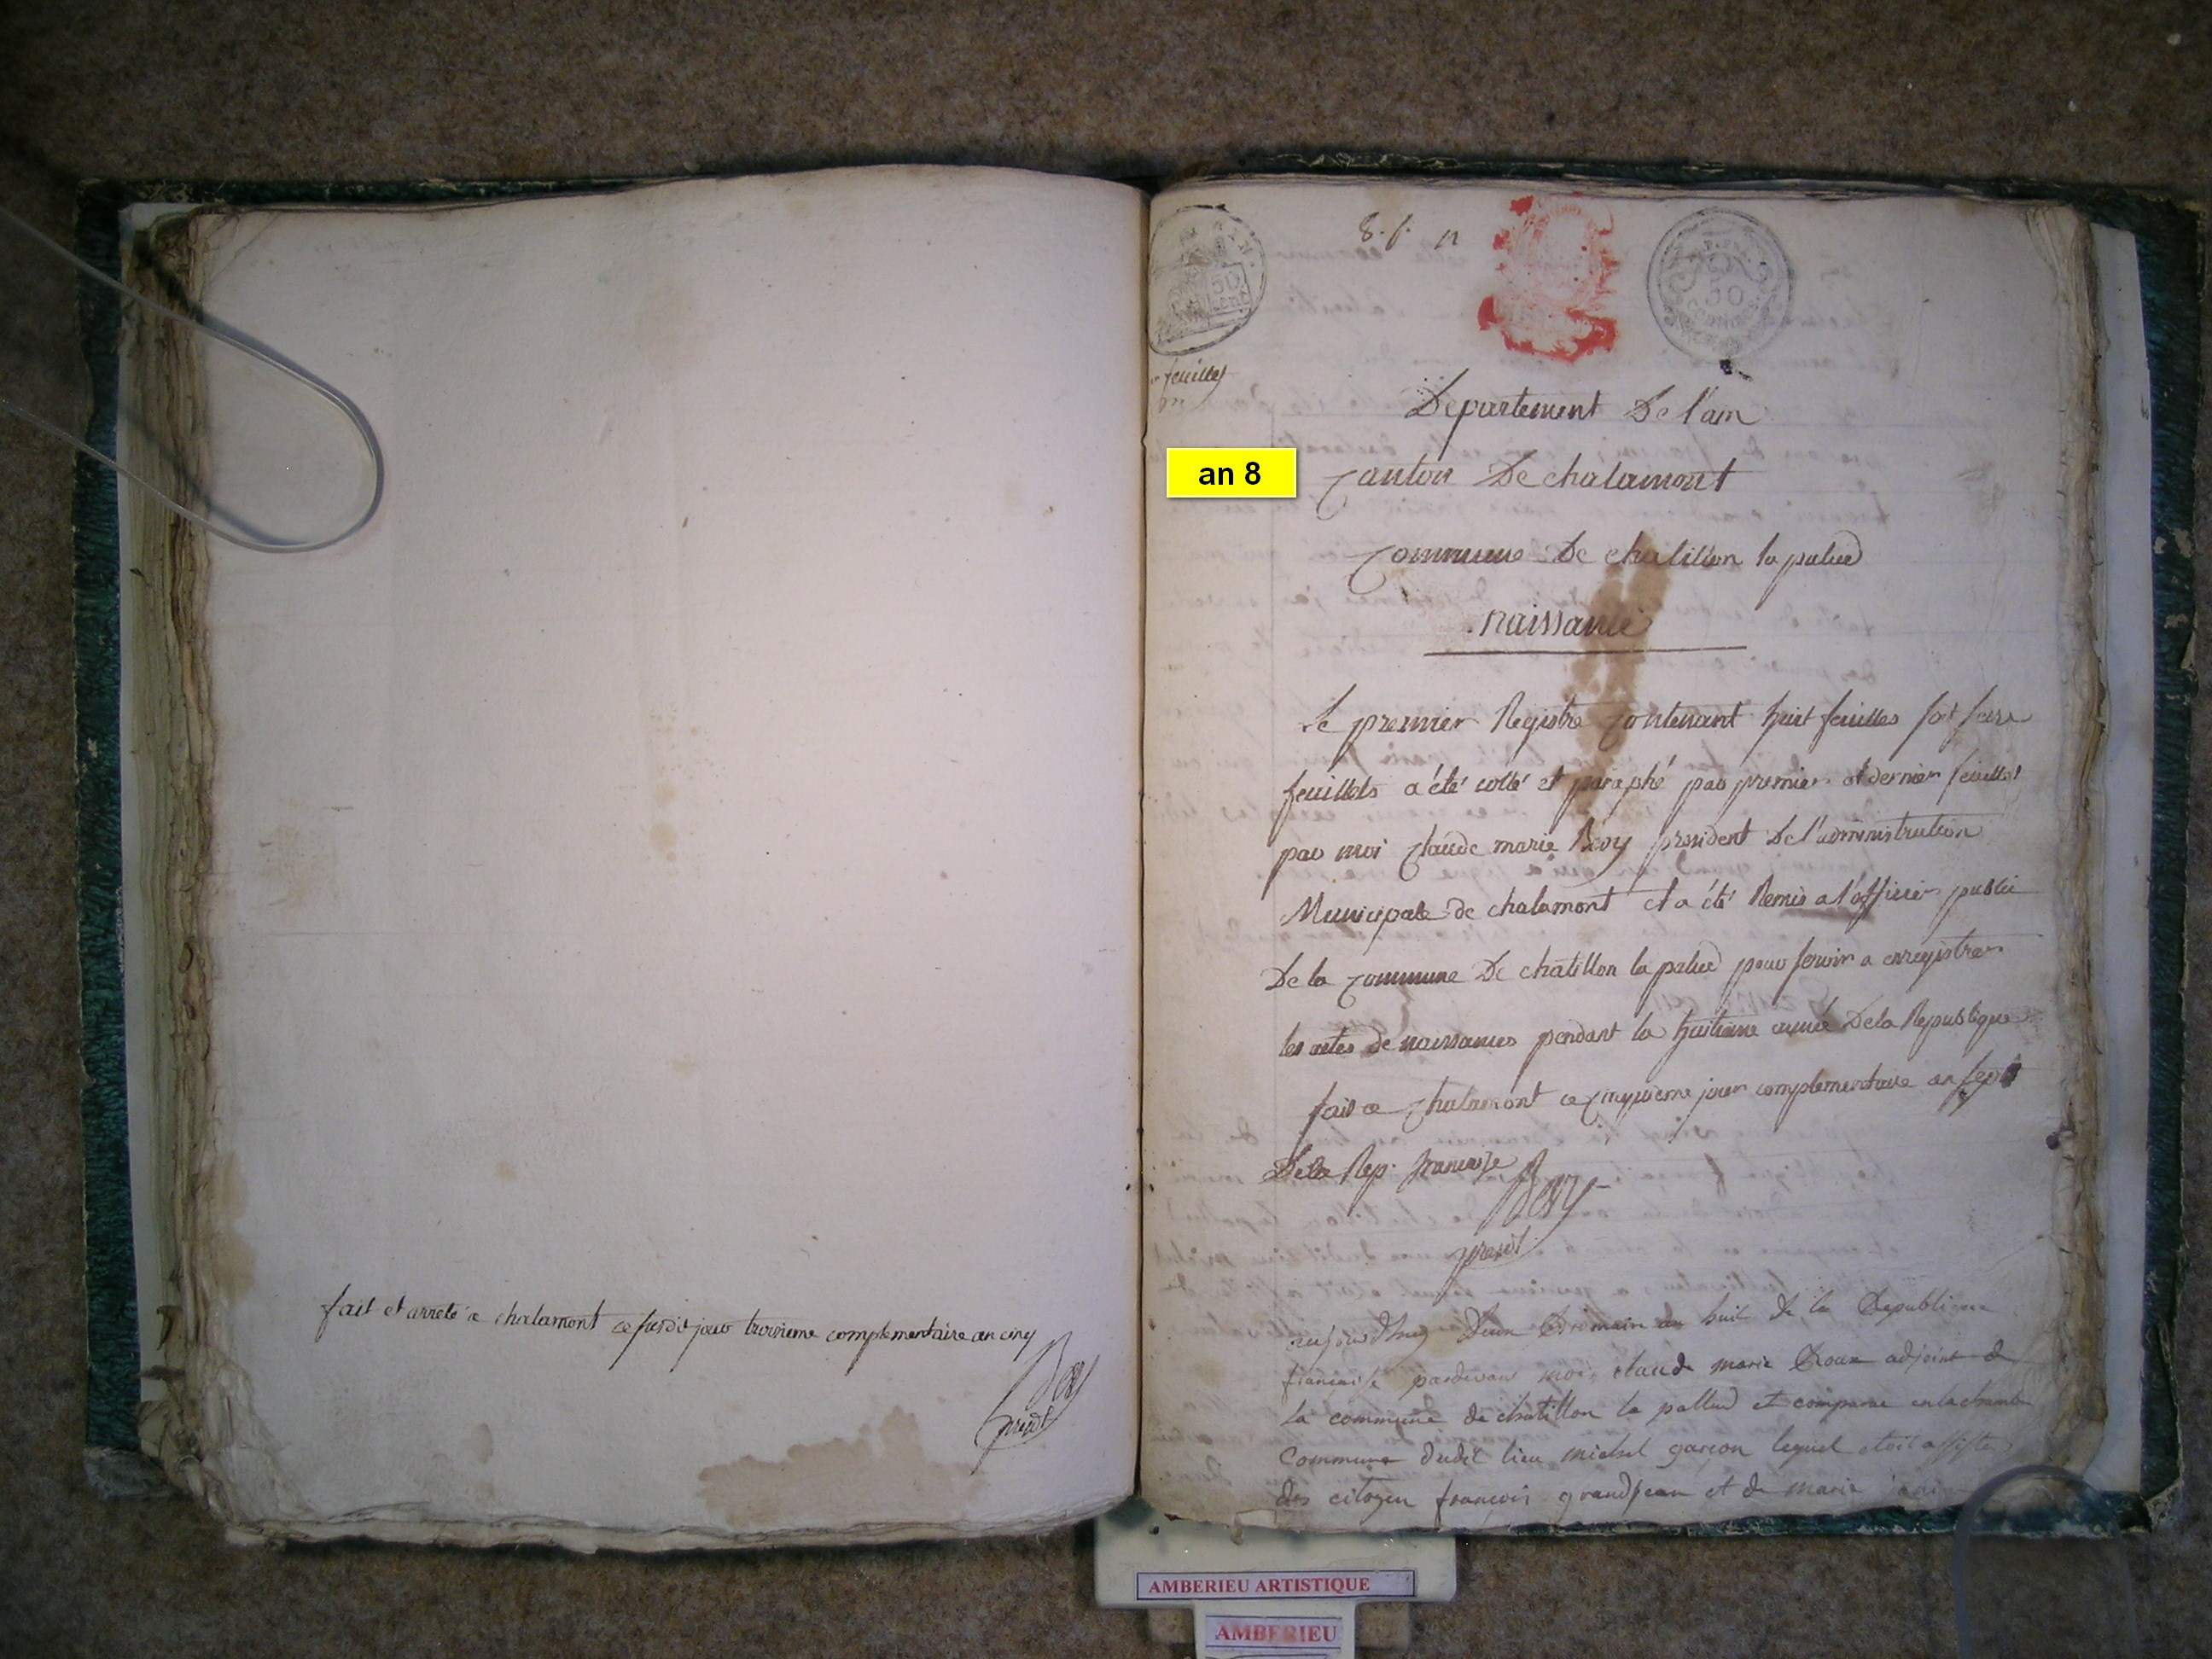 fait et arreté a chalamont ce susdit jour troisieme complementaire an cinq
presdt
8. f. n
50
cent
50
feuilles
Département De l'ain
an 8
Canton De chalamont
Commune De chatillon la palud
naissance
Le premier Registre Contenant huit feuilles soit seize
feuillets a été cotté et paraphé par premier et dernier feuillet
par moi Claude marie président De l'administration
Municipale de chalamont et a été Remis a l'officier public
De la Commune De chatillon la palud pour servir a enregistrer
les actes de naissances pendant la huitieme année De la Republique
fait a Chalamont ce Cinquieme jour complementaire an sept
De la Rep. francaise
presdt
aujourd'huy an huit de la Republique
francaise pardevant moi claude marie Roux adjoint de
la commune de chatillon la pallud et comparue en la chambre
Commune dudit lieu michel garçon lequel etoit assisté
des citoyen francois grandjean et de marie
AMBERIEU ARTISTIQUE
AMBERIEU